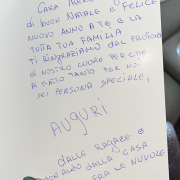 CARA
DI BUON NATALE E FELICE
NUOVO ANNO A TE E LA
TUTTA TUA FAMILIA
TI RINGRAZIAMO DAL PROFONDO
DI NOSTRO CUORE PER CHE
A FATO TANTO PER NOI
SEI PERSONA SPECIALE,
AUGURI
DALLE RAGAZE E
DALLA CASA
FRA LE NUVOLE